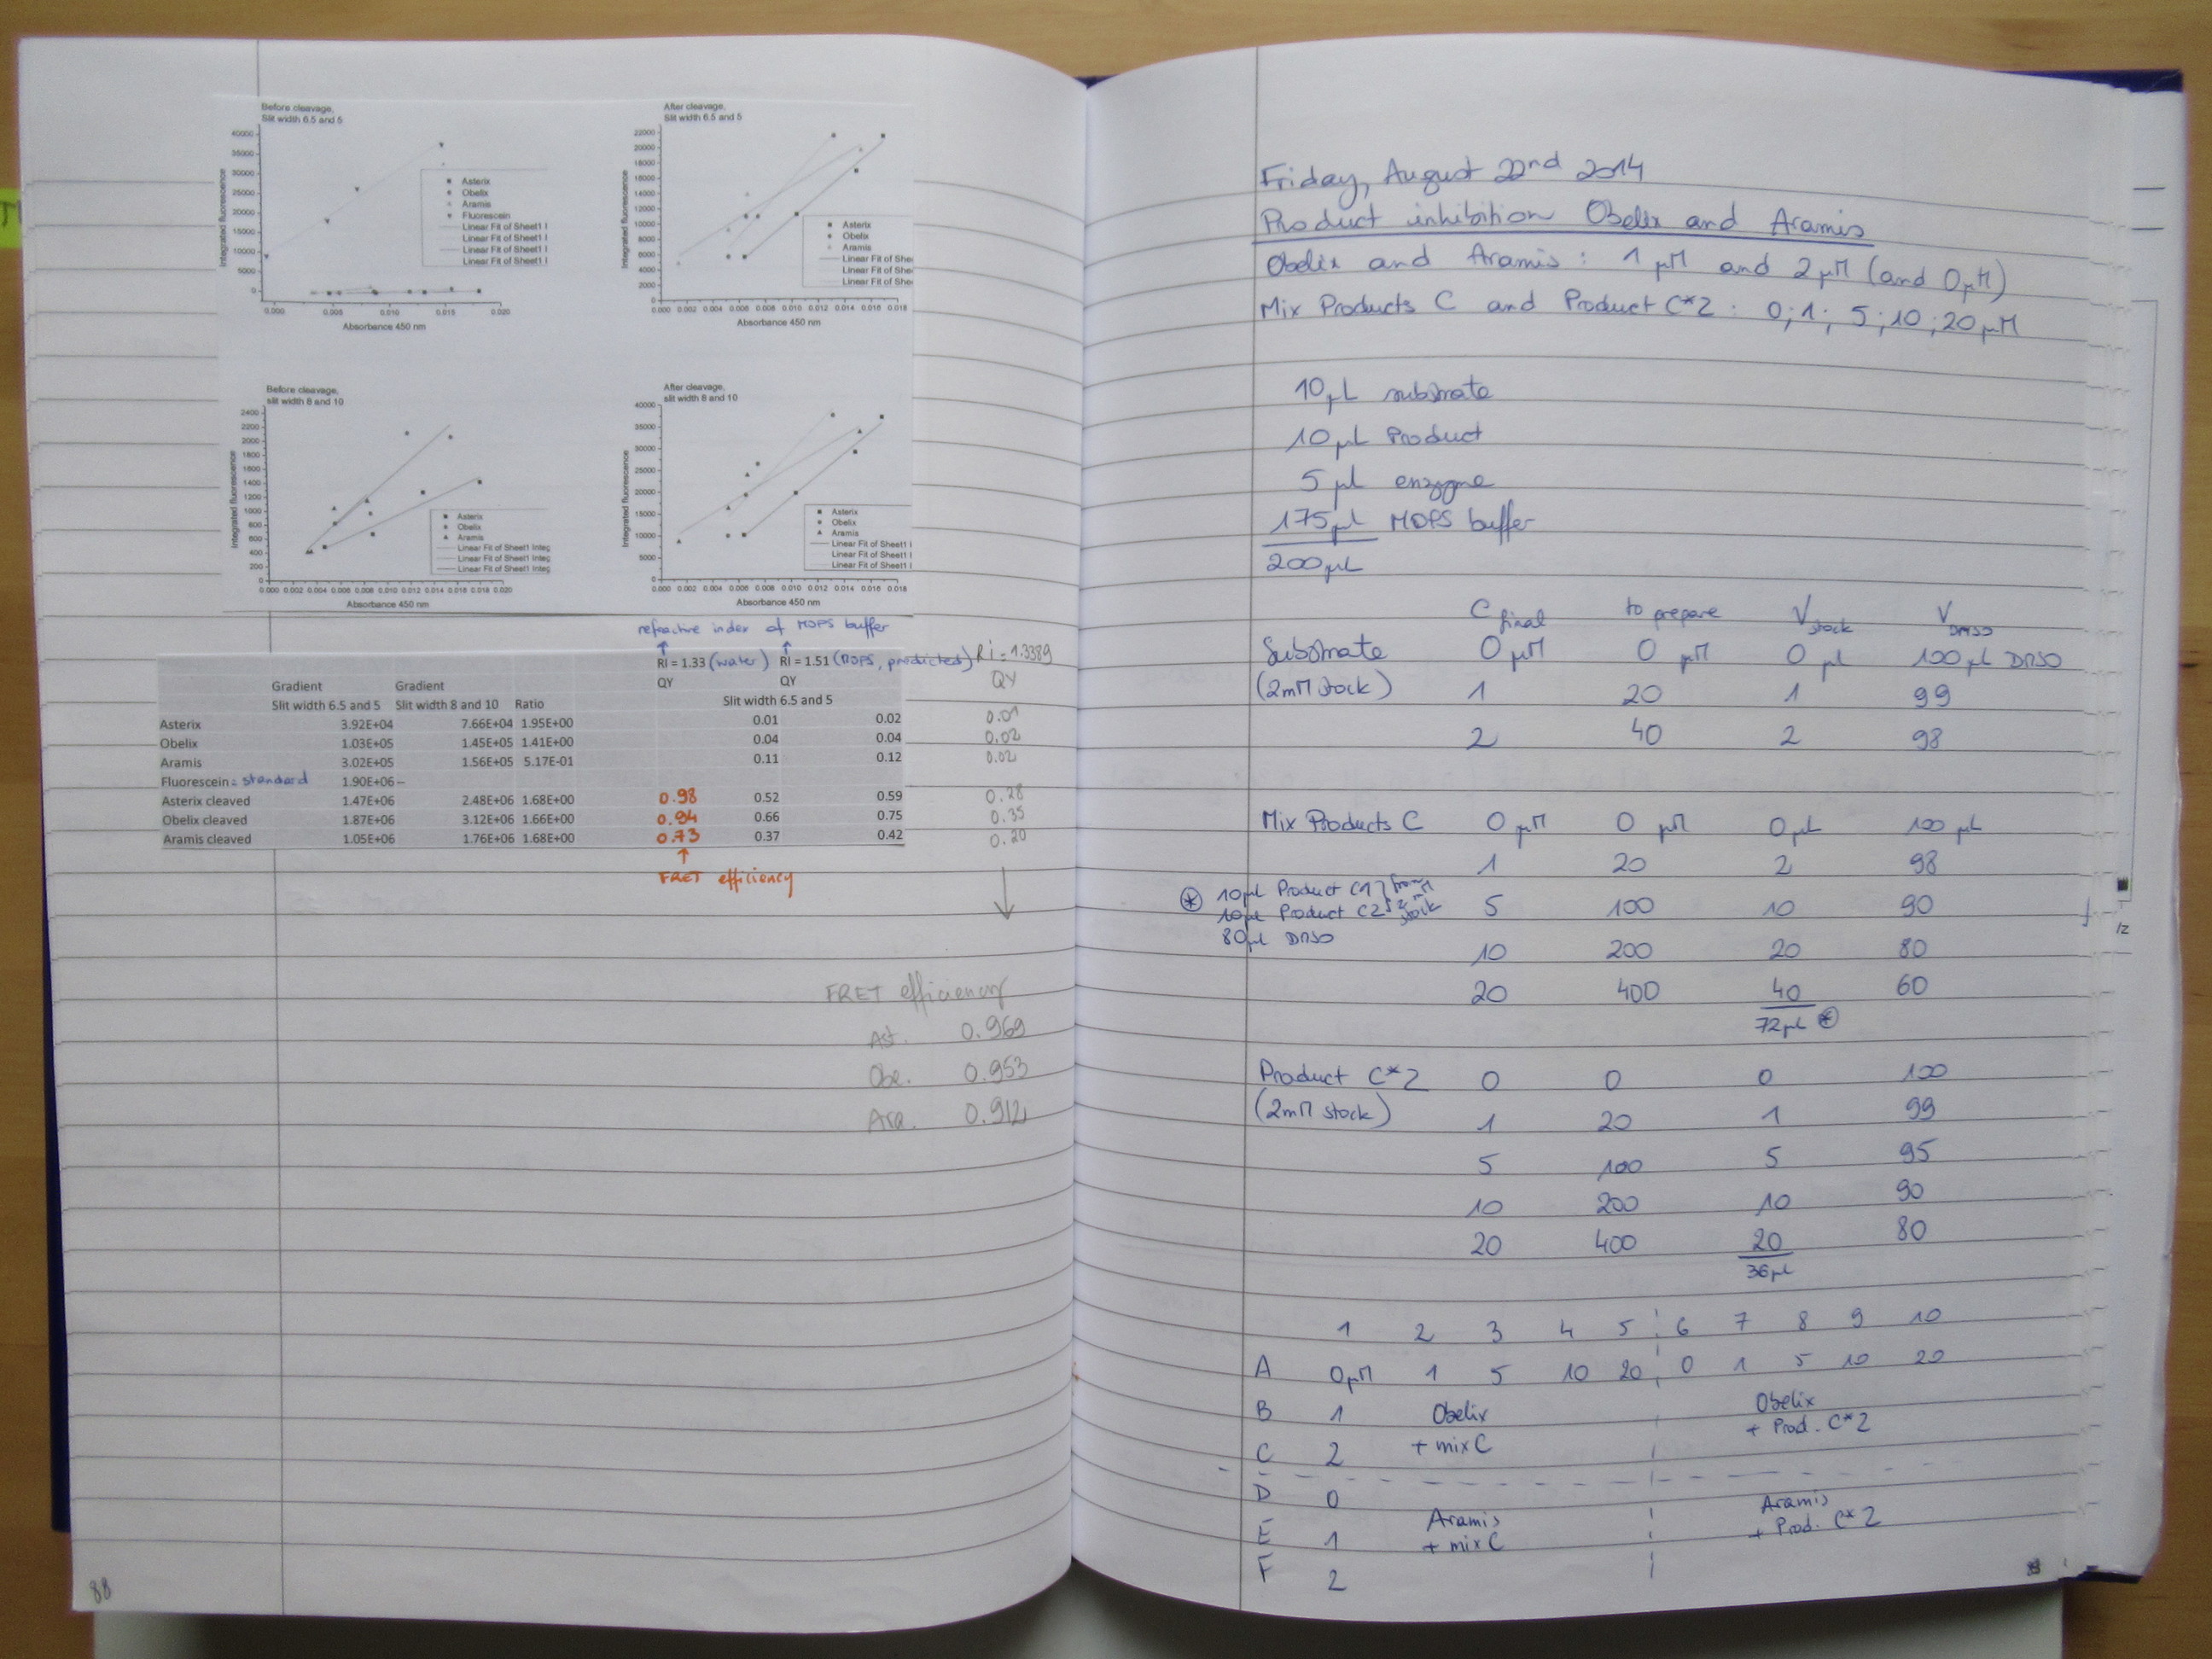 Before cleavage,
Slit width 6.5 and 5
Integrated fluorescence
40000
35000
30000
25000
20000
15000
10000
5000
0
0.000 0.005 0.010 0.015 0.020
Absorbance 450 nm
Asterix
Obelix
Aramis
Fluorescein
Linear Fit of Sheet1 I
Linear Fit of Sheet1 I
Linear Fit of Sheet1 I
Linear Fit of Sheet1 I
After cleavage,
Slit width 6.5 and 5
Integrated fluorescence
22000
20000
18000
16000
14000
12000
10000
8000
6000
4000
2000
0
0.000 0.002 0.004 0.006 0.008 0.010 0.012 0.014 0.016 0.018
Absorbance 450 nm
Asterix
Obelix
Aramis
Linear Fit of She
Linear Fit of She
Linear Fit of She
Before cleavage,
slit width 8 and 10
Integrated fluorescence
2400
2200
2000
1800
1600
1400
1200
1000
800
600
400
200
0
0.000 0.002 0.004 0.006 0.008 0.010 0.012 0.014 0.016 0.018 0.020
Absorbance 450 nm
Asterix
Obelix
Aramis
Linear Fit of Sheet1 Integ
Linear Fit of Sheet1 Integ
Linear Fit of Sheet1 Integ
After cleavage,
slit width 8 and 10
Integrated fluorescence
40000
35000
30000
25000
20000
15000
10000
5000
0
0.000 0.002 0.004 0.006 0.008 0.010 0.012 0.014 0.016 0.018
Absorbance 450 nm
Asterix
Obelix
Aramis
Linear Fit of Sheet1 I
Linear Fit of Sheet1 I
Linear Fit of Sheet1 I
refractive index of MOPS buffer
↑ ↑
RI = 1.33 (water) RI = 1.51 (MOPS, predicted) Ri = 1.3389
Gradient Gradient QY QY QY
Slit width 6.5 and 5 Slit width 8 and 10 Ratio Slit width 6.5 and 5
Asterix 3.92E+04 7.66E+04 1.95E+00 0.01 0.02 0.01
Obelix 1.03E+05 1.45E+05 1.41E+00 0.04 0.04 0.02
Aramis 3.02E+05 1.56E+05 5.17E-01 0.11 0.12 0.02
Fluorescein = standard 1.90E+06 –
Asterix cleaved 1.47E+06 2.48E+06 1.68E+00 0.98 0.52 0.59 0.28
Obelix cleaved 1.87E+06 3.12E+06 1.66E+00 0.94 0.66 0.75 0.35
Aramis cleaved 1.05E+06 1.76E+06 1.68E+00 0.73 0.37 0.42 0.20
↑
FRET efficiency
↓
FRET efficiency
Ast. 0.969
Obe. 0.953
Ara. 0.912
88
Friday, August 22nd 2014
Product inhibition Obelix and Aramis
Obelix and Aramis : 1 µM and 2 µM (and 0 µM)
Mix Products C and Product C*2 : 0 ; 1 ; 5 ; 10 ; 20 µM
10 µL substrate
10 µL Product
5 µl enzyme
175 µl MOPS buffer
200 µL
C final to prepare V stock V DMSO
Substrate 0 µM 0 µM 0 µl 100 µl DMSO
(2mM stock) 1 20 1 99
2 40 2 98
Mix Products C 0 µM 0 µM 0 µL 100 µL
1 20 2 98
⊛ 10µl Product C1 } from
10µl Product C2 } 2 mM stock
80µl DMSO
5 100 10 90
10 200 20 80
20 400 40 60
72 µl ⊛
Product C*2 0 0 0 100
(2mM stock) 1 20 1 99
5 100 5 95
10 200 10 90
20 400 20 80
36 µl
1 2 3 4 5 6 7 8 9 10
A 0µM 1 5 10 20 0 1 5 10 20
B 1 Obelix Obelix
+ mix C + Prod. C*2
C 2
D 0
Aramis Aramis
E 1 + mix C + Prod. C*2
F 2